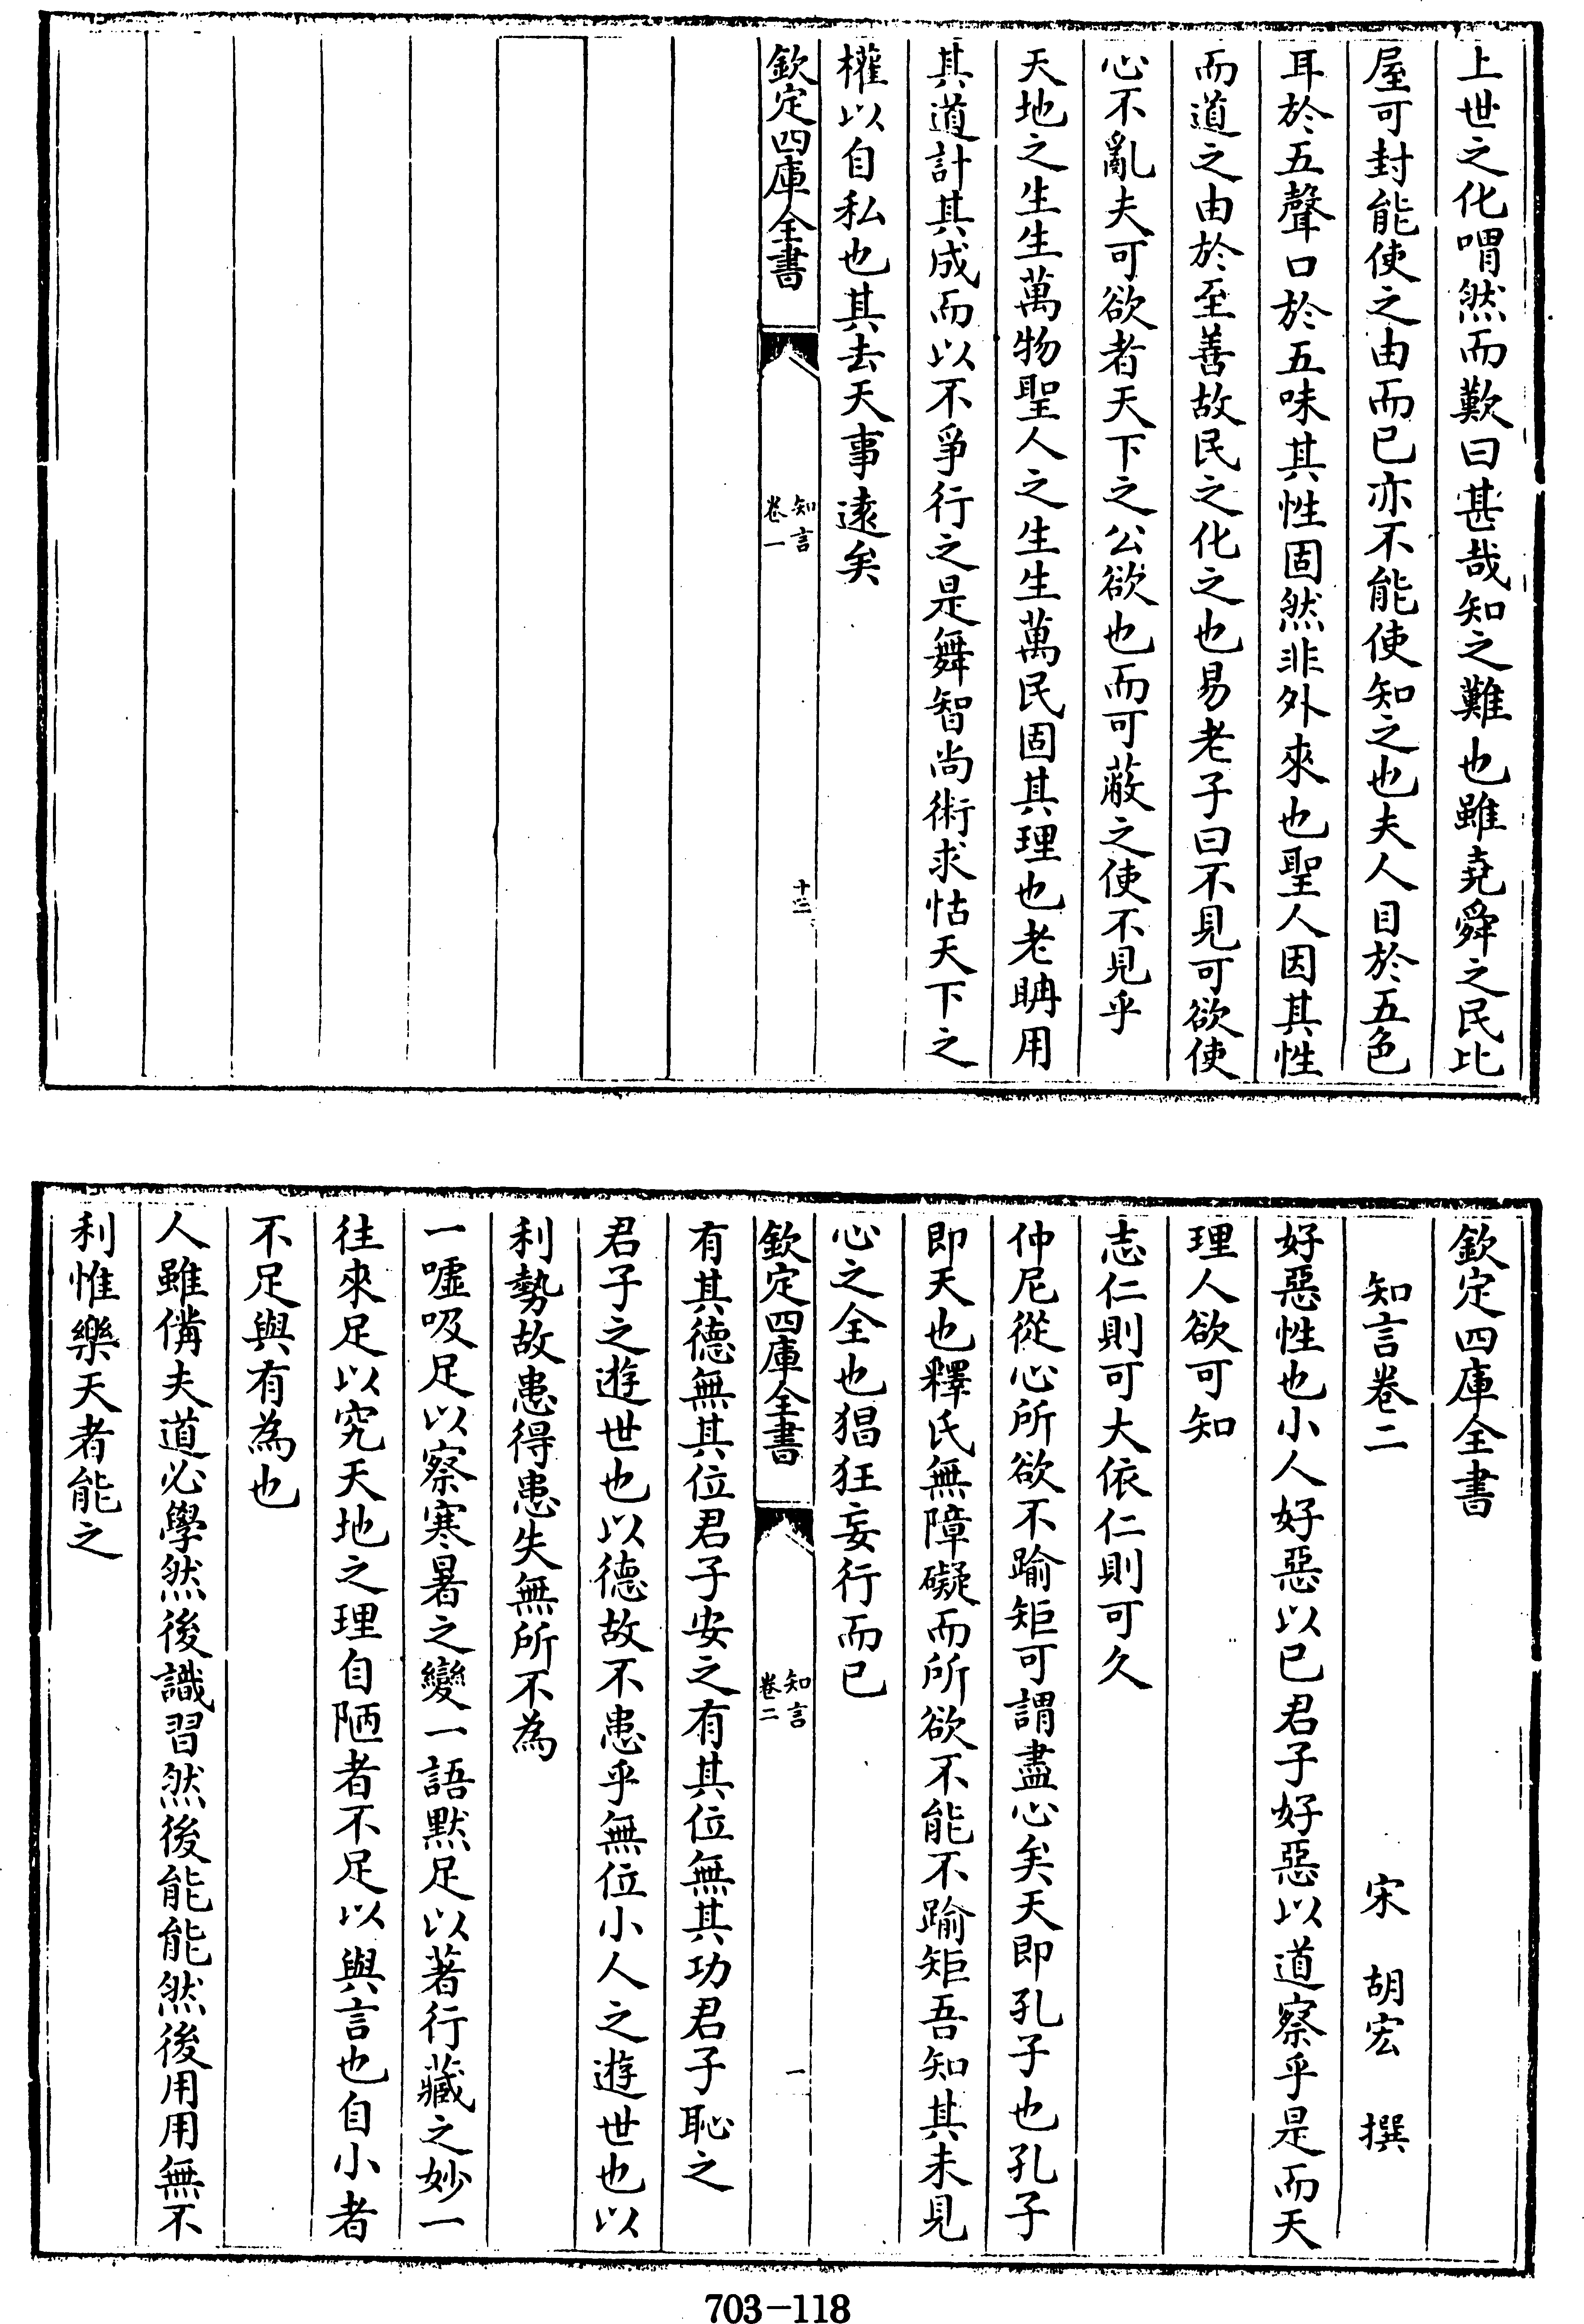 上世之化喟然而歎曰甚哉知之難也雖堯舜之民比
屋可封能使之由而已亦不能使知之也夫人目於五色
耳於五聲口於五味其性固然非外來也聖人因其性
而道之由於至善故民之化之也易老子曰不見可欲使
心不亂夫可欲者天下之公欲也而可蔽之使不見乎
天地之生生萬物聖人之生生萬民固其理也老聃用
其道計其成而以不爭行之是舞智尚術求怙天下之
權以自私也其去天事遠矣
欽定四庫全書
知言
卷一
十三
欽定四庫全書
知言卷二
宋 胡宏 撰
好惡性也小人好惡以已君子好惡以道察乎是而天
理人欲可知
志仁則可大依仁則可久
仲尼從心所欲不踰矩可謂盡心矣天即孔子也孔子
即天也釋氏無障礙而所欲不能不踰矩吾知其未見
心之全也猖狂妄行而已
欽定四庫全書
知言
卷二
一
有其德無其位君子安之有其位無其功君子恥之
君子之遊世也以德故不患乎無位小人之遊世也以
利勢故患得患失無所不為
一噓吸足以察寒暑之變一語默足以著行藏之妙一
往來足以究天地之理自陋者不足以與言也自小者
不足與有為也
人雖備夫道必學然後識習然後能能然後用用無不
利惟樂天者能之
703-118